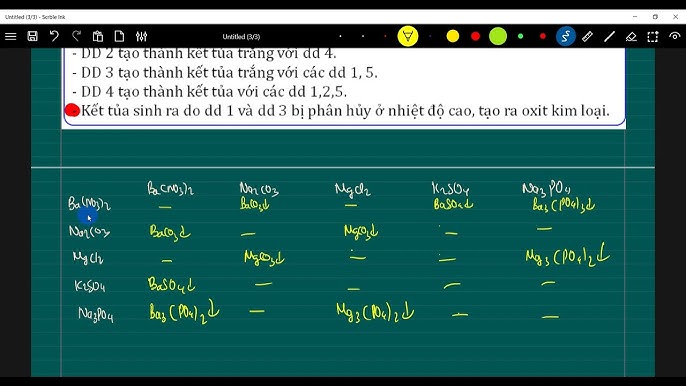 Untitled (3/3) - Scrble Ink
Untitled (3/3)
- DD 2 tạo thành kết tủa trắng với dd 4.
- DD 3 tạo thành kết tủa trắng với các dd 1, 5.
- DD 4 tạo thành kết tủa với các dd 1,2,5.
Kết tủa sinh ra do dd 1 và dd 3 bị phân hủy ở nhiệt độ cao, tạo ra oxit kim loại.
Ba(NO3)2 Na2CO3 MgCl2 K2SO4 Na3PO4
Ba(NO3)2 — BaCO3↓ — BaSO4↓ Ba3(PO4)3↓
Na2CO3 BaCO3↓ — MgCO3↓ — —
MgCl2 — MgCO3↓ — — Mg3(PO4)2↓
K2SO4 BaSO4↓ — — — —
Na3PO4 Ba3(PO4)2↓ — Mg3(PO4)2↓ — —